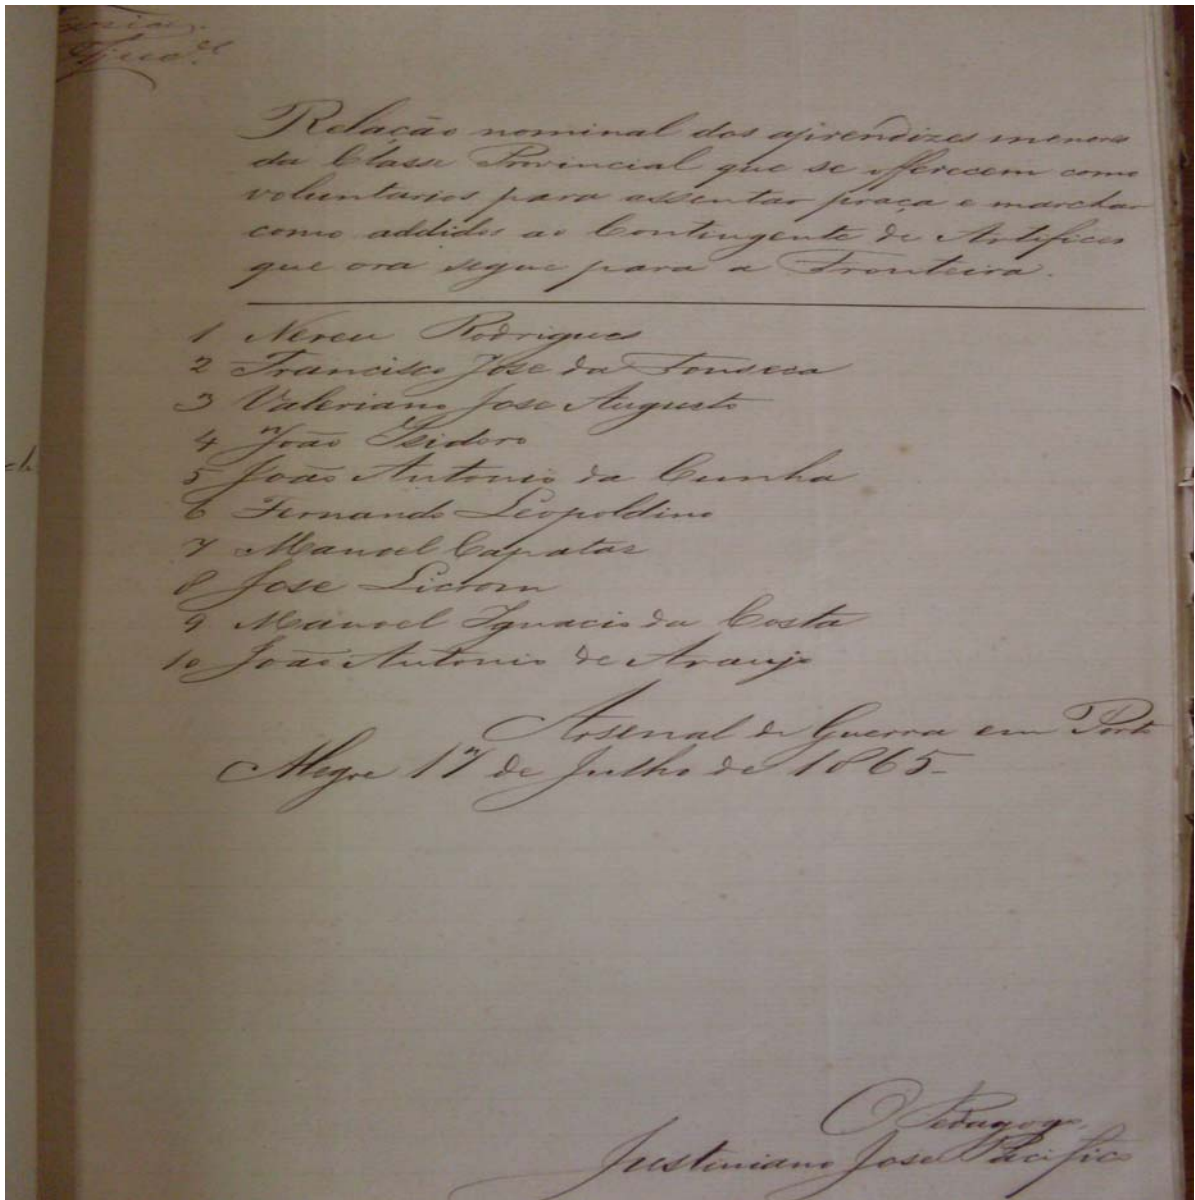 Relação nominal dos aprendizes menores
da Classe Provincial que se offerecem como
voluntarios para assentar praça e marchar
como addidos ao Contingente de Artifices
que ora segue para a Fronteira.
1 Nereu Rodrigues
2 Francisco Jose da Fonseca
3 Valeriano Jose Augusto
4 João Isidoro
5 João Antonio da Cunha
6 Fernando Leopoldino
7 Manoel Capataz
8 Jose
9 Manoel Ignacio da Costa
10 João Antonio de Araujo
Arsenal de Guerra em Porto
Alegre 17 de Julho de 1865-
O Pedagogo,
Justiniano Jose Pacifico